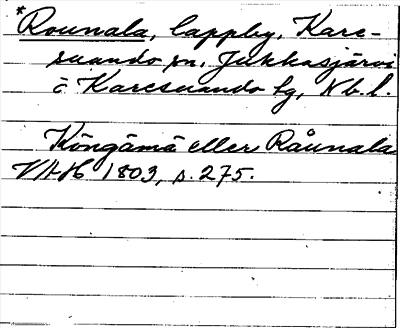 *Rounala, lappby, Kare-
suando sn, Jukkasjärvi
o Karesuando tg, Nb.l.
Köngämä eller Råunala
VAH 1803, s. 275.